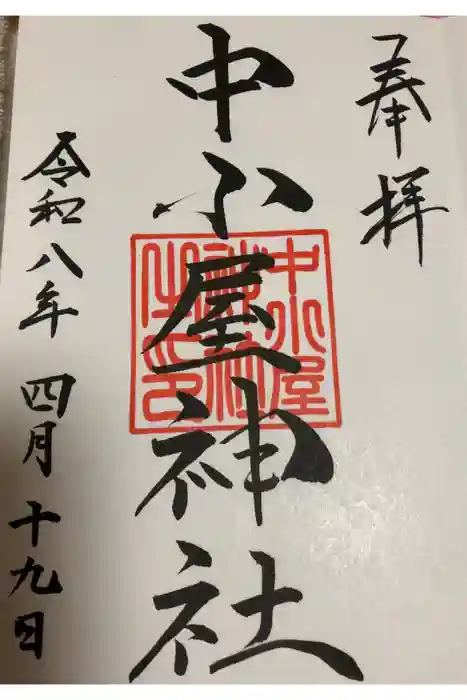 奉拝
中小屋神社
中小屋
神社
之印
令和八年 四月十九日